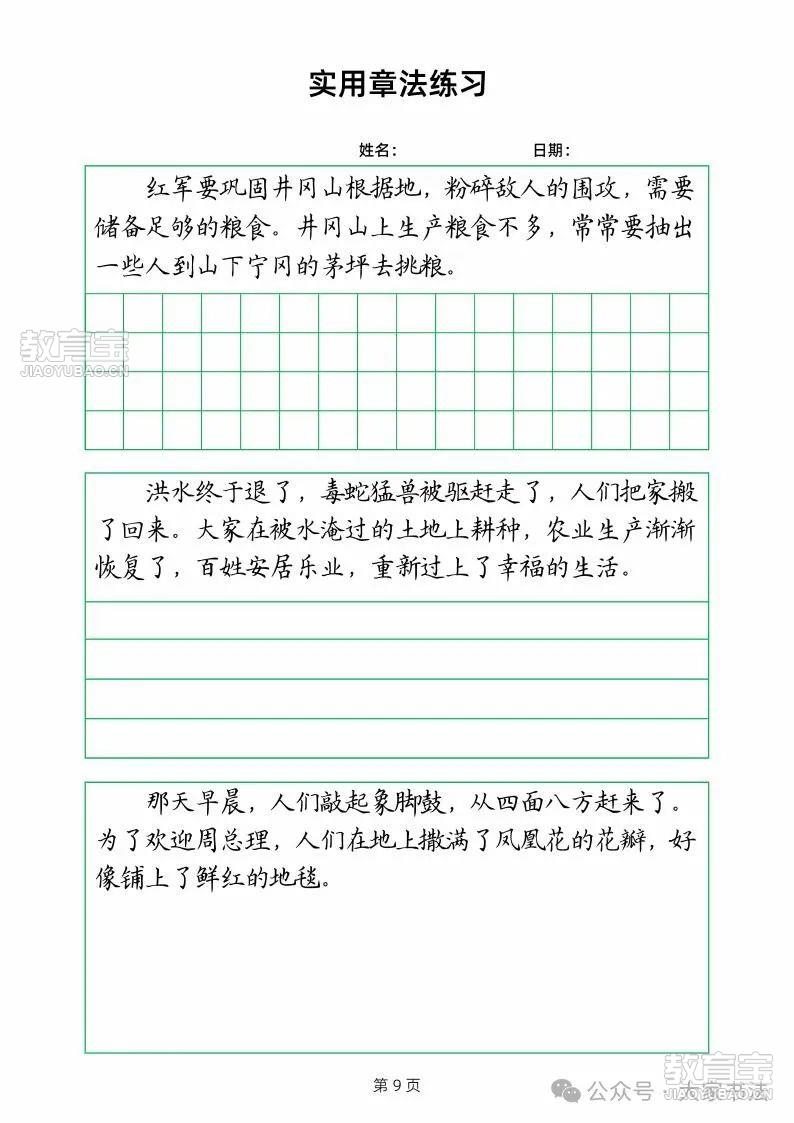 实用章法练习
姓名：
日期：
红军要巩固井冈山根据地，粉碎敌人的围攻，需要
储备足够的粮食。井冈山上生产粮食不多，常常要抽出
一些人到山下宁冈的茅坪去挑粮。
教育宝
JIAOYUBAO.CN
洪水终于退了，毒蛇猛兽被驱赶走了，人们把家搬
了回来。大家在被水淹过的土地上耕种，农业生产渐渐
恢复了，百姓安居乐业，重新过上了幸福的生活。
那天早晨，人们敲起象脚鼓，从四面八方赶来了。
为了欢迎周总理，人们在地上撒满了凤凰花的花瓣，好
像铺上了鲜红的地毯。
第 9 页
教育宝
JIAOYUBAO.CN
公众号 · 大家书法